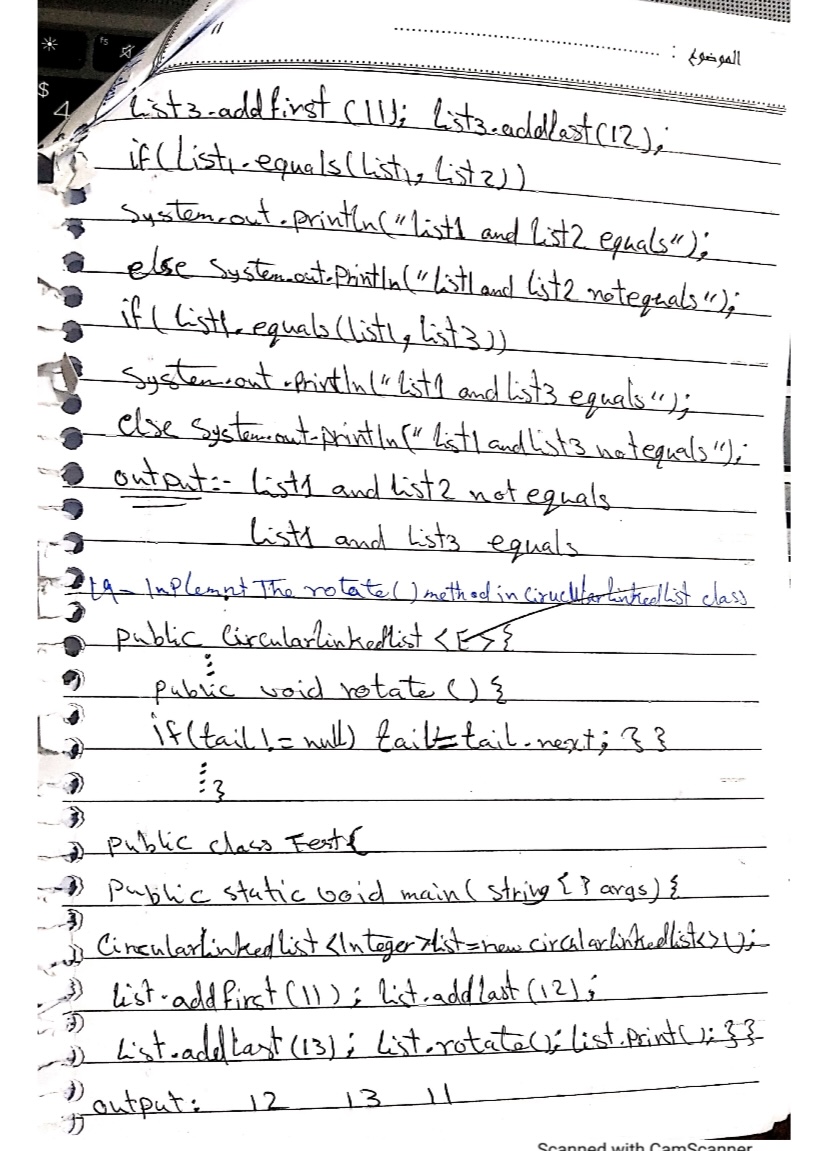 الموضوع :
list3.addfirst (11); list3.addlast(12);
if(list1.equals(list1, list2))
System.out.println("list1 and list2 equals");
else System.out.println("list1 and list2 notequals");
if( list1.equals(list1, list3))
System.out.println("list1 and list3 equals");
else System.out.println(" list1 and list3 notequals");
output:- list1 and list2 not equals
list1 and list3 equals
19- Inplemnt The rotate() method in Cirucularlinkedlist class
public Circularlinkedlist <E>{
public void rotate () {
if(tail != null) tail=tail.next; } }
}
public class Test{
public static void main( string { } args) {
Circularlinkedlist <Integer>list=new circularlinkedlist<>();
list.addfirst(11); list.addlast(12);
list.addlast(13); list.rotate(); list.print(); }}
output: 12 13 11
Scanned with CamScanner
F5
$
4